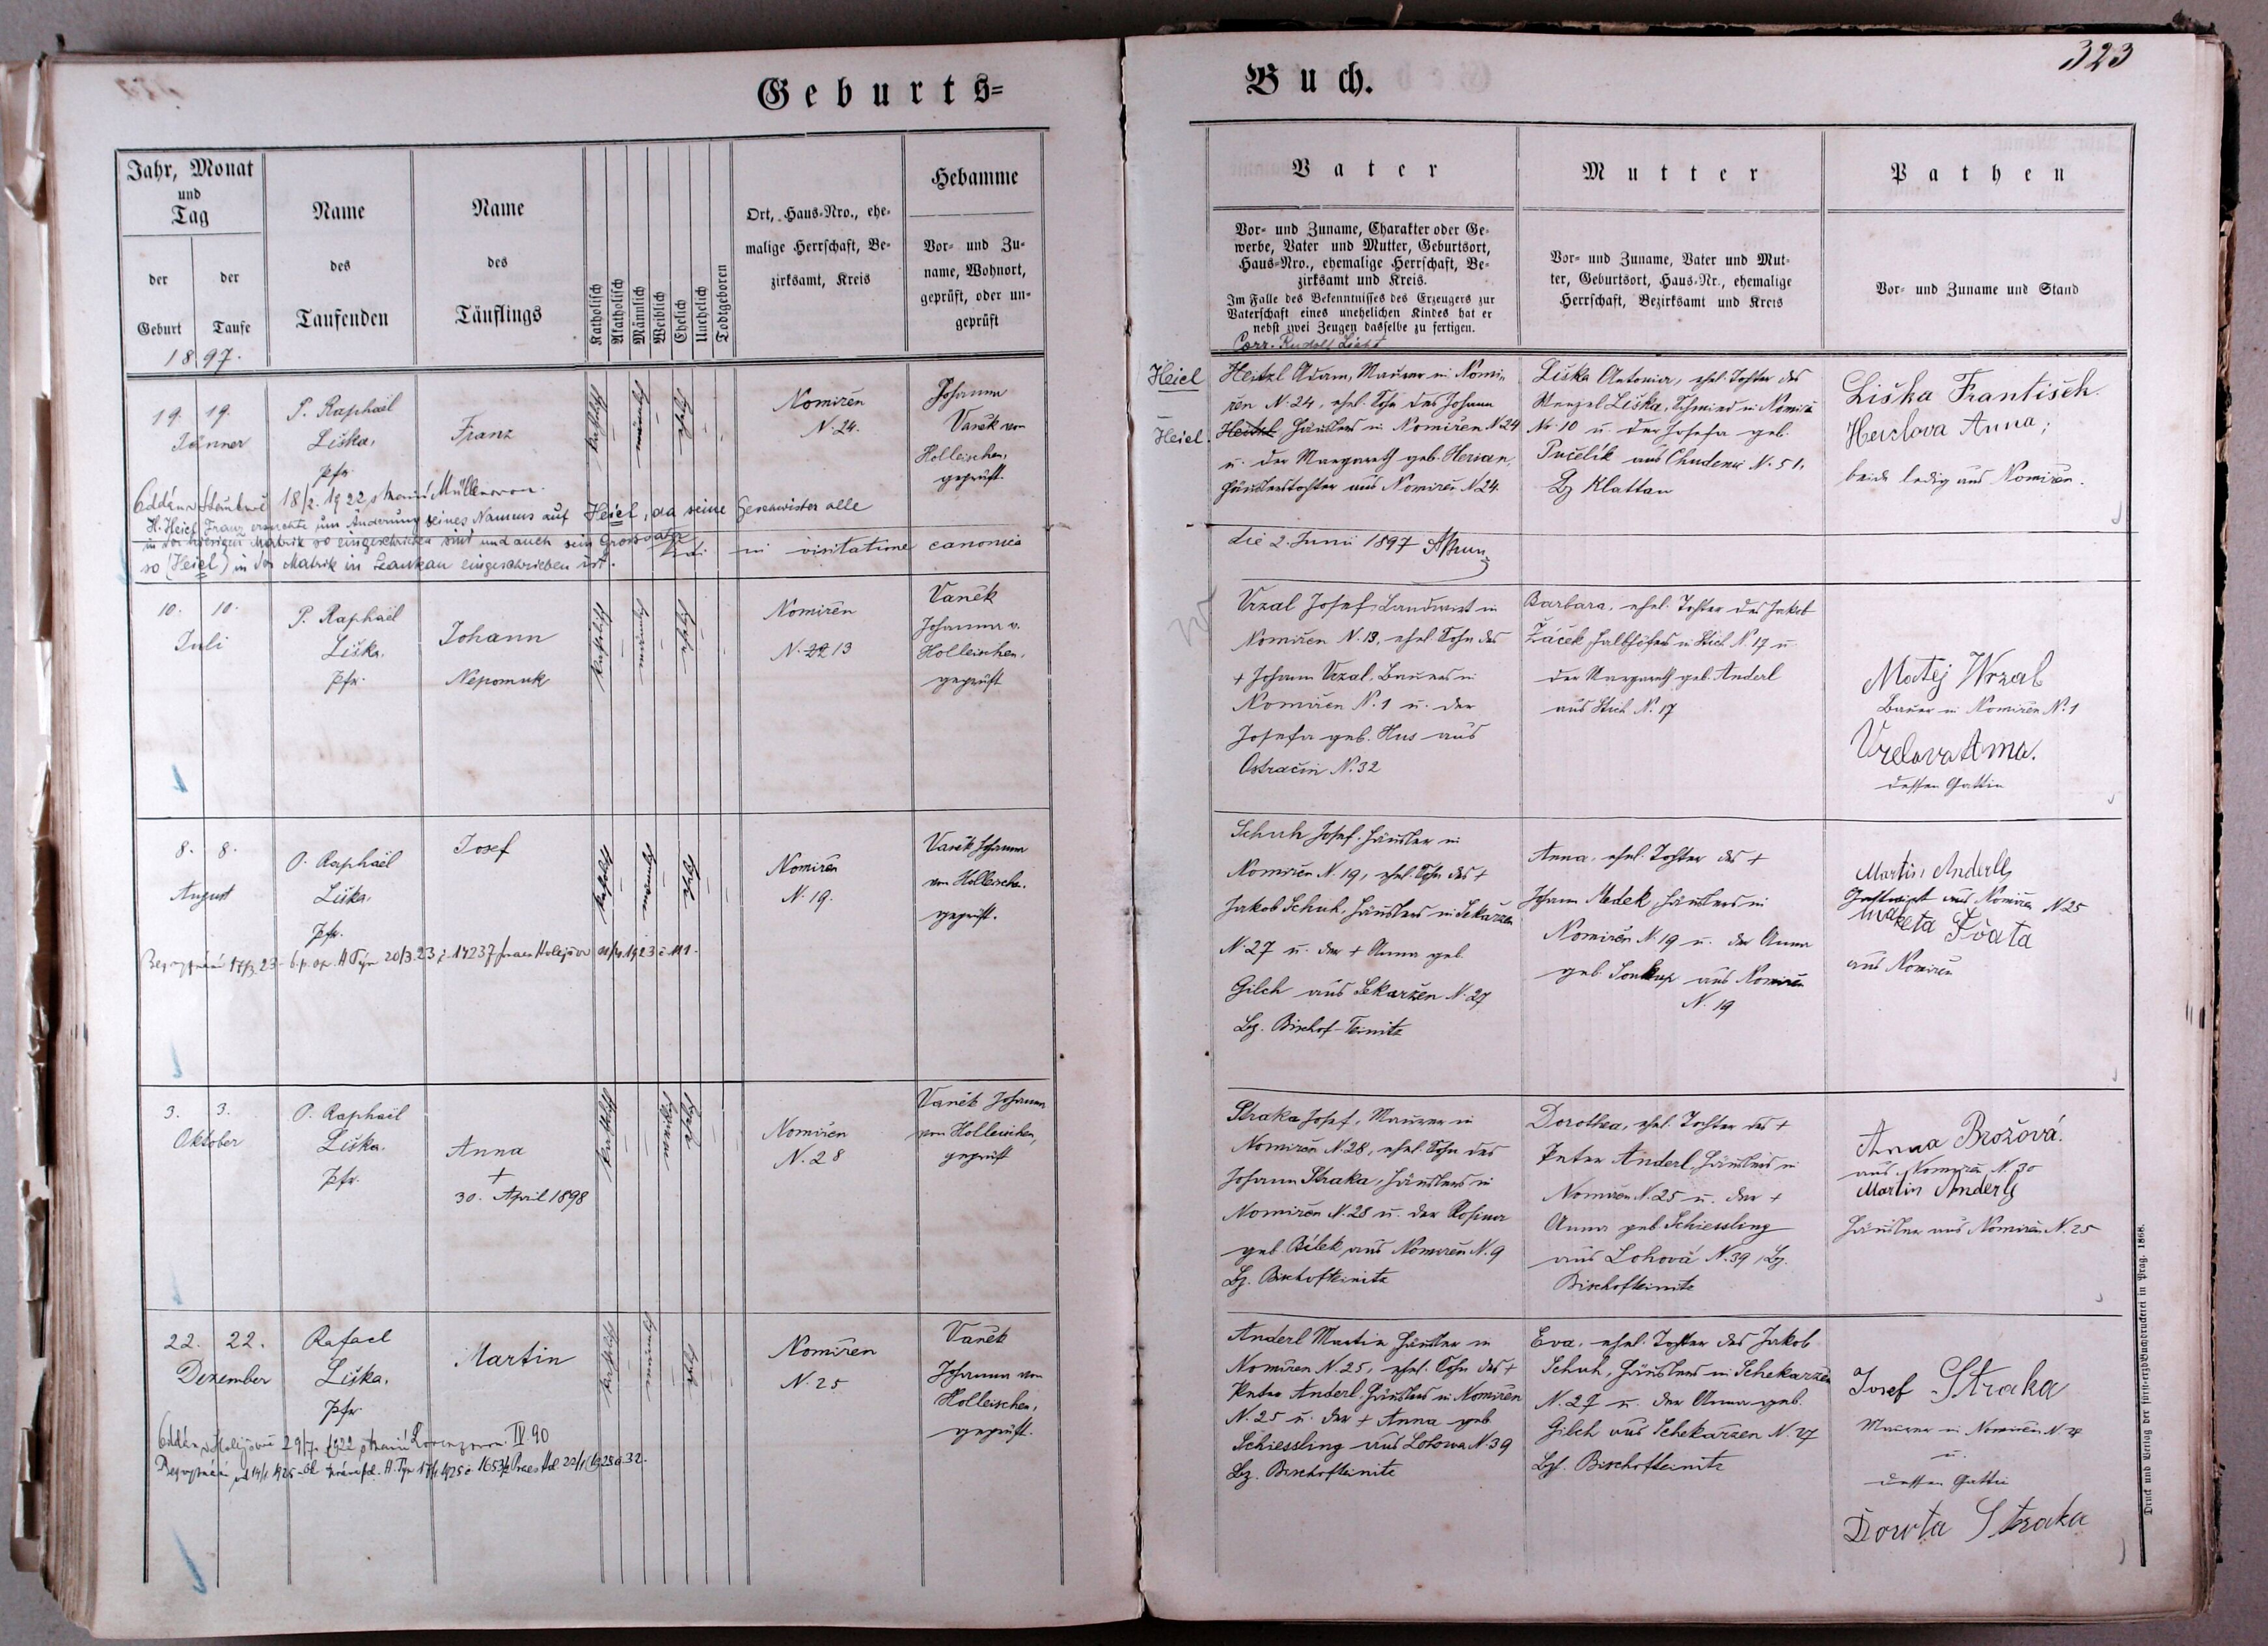 323
Geburts=
Buch.
Jahr, Monat
und
Tag
der
Geburt
der
Taufe
1897.
Name
des
Taufenden
Name
des
Täuflings
Katholisch
Akatholisch
Männlich
Weiblich
Ehelich
Unehelich
Todtgeboren
Ort, Haus-Nro., ehe-
malige Herrschaft, Be-
zirksamt, Kreis
Hebamme
Vor- und Zu-
name, Wohnort,
geprüft, oder un-
geprüft
Vater
Vor- und Zuname, Charakter oder Ge-
werbe, Vater und Mutter, Geburtsort,
Haus-Nro., ehemalige Herrschaft, Be-
zirksamt und Kreis.
Im Falle des Bekenntnisses des Erzeugers zur
Vaterschaft eines unehelichen Kindes hat er
nebst zwei Zeugen dasselbe zu fertigen.
Corr. Rudolf
Mutter
Vor- und Zuname, Vater und Mut-
ter, Geburtsort, Haus-Nr., ehemalige
Herrschaft, Bezirksamt und Kreis
Pathen
Vor- und Zuname und Stand
19. 19.
Jänner
P. Raphaël
Liška,
Pfr.
Franz
katholisch
männlich
ehelich
Nomiřen
N. 24.
Johanna
Vaněk von
Holleischen,
geprüft.
Heicl
Heicl
Heitzl Adam, Maurer in Nomi-
řen N. 24, ehel. Sohn des Johann
Häuslers in Nomiřen N 24
u. der Margareth geb. Herian,
Häuslerstochter aus Nomiřen N 24.
Liška Antonia, ehel. Tochter des
Wenzel Liška, Schmied in Nomiřen
N. 10 u. der Josefa geb.
Pučelik aus Chudenic N. 51,
Bz Klattau
Liška Frantisek.
Heizlova Anna,
beide ledig aus Nomiřen.
18/2. 1922 s Marií Müllerovou.
H. Heicl Franz ersuchte um Änderung seines Namens auf Heicl, da seine Geschwister alle
in der hiesigen Matrik so eingeschrieben sind und auch sein Grossvater
so (Heicl) in der Matrik in eingeschrieben ist.
in visitatione canonica
die 2. Junii 1897
10. 10.
Juli
P. Raphaël
Liška,
Pfr.
Johann
Nepomuk
katholisch
männlich
ehelich
Nomiřen
N. 22 13
Vaněk
Johanna v.
Holleischen,
geprüft
Vrzal Josef, Landwirt in
Nomiřen N. 13, ehel. Sohn des
+ Johann Vrzal, Bauers in
Nomiřen N. 1 u. der
Josefa geb. Hus aus
Ostračin N. 32
Barbara, ehel. Tochter des Jakob
Žáček, Halbhöfers in Stich N. 17 u.
der Margareth geb. Anderl
aus Stich N. 17
Matej Wrzal
Bauer in Nomiřen N. 1
Anna.
dessen Gattin
8. 8.
August
P. Raphaël
Liška,
Pfr.
Josef
katholisch
männlich
ehelich
Nomiřen
N. 19.
Vaněk Johanna
von Holleischen.
geprüft.
Schuh Josef, Häusler in
Nomiřen N. 19, ehel. Sohn des +
Jakob Schuh, Häuslers in Sekařzen
N. 27 u. der + Anna geb.
Gilch aus Sekaržen N. 27
Bz. Bischof-Teinitz
Anna, ehel. Tochter des +
Johann Medek, Häuslers in
Nomiřen N. 19 u. der Anna
geb. Soukup aus Nomiřen
N. 19
Martin Anderle
Gastwirt aus Nomiřen N 25
aus Nomiřen
3. 3.
Oktober
P. Raphaël
Liška.
Pfr.
Anna
+
30. April 1898
katholisch
weiblich
ehelich
Nomiřen
N. 28
Vaněk Johanna
von Holleischen,
geprüft
Straka Josef, Maurer in
Nomiřen N. 28, ehel. Sohn des
Johann Straka, Häuslers in
Nomiřen N. 28 u. der Rosina
geb. Bílek aus Nomiřen N. 9
Bz. Bischofteinitz
Dorothea, ehel. Tochter des +
Peter Anderl, Häuslers in
Nomiřen N. 25 u. der +
Anna geb. Schiessling
aus Lohová N. 39, Bz.
Bischofteinitz
Anna Brožová.
aus Nomiřen N. 30
Martin Anderle
Häusler aus Nomiřen N. 25
22. 22.
Dezember
Rafael
Liška,
Pfr.
Martin
katholisch
männlich
ehelich
Nomiřen
N. 25
Vaněk
Johanna von
Holleischen,
geprüft.
Anderl Martin Häusler in
Nomiřen N. 25, ehel. Sohn des +
Peter Anderl, Häuslers in Nomiřen
N. 25 u. der + Anna geb.
Schiessling aus Lohowa N. 39
Bz. Bischofteinitz
Eva, ehel. Tochter des Jakob
Schuh, Häuslers in Schekarzen
N. 27 u. der Anna geb.
Gilch aus Schekarzen N. 27
Bz. Bischofteinitz
Josef Straka
Maurer in Nomiřen N. 28
u.
dessen Gattin
Dorota Straka
Druck und Verlag der fürst-erzb. Buchdruckerei in Prag. 1868.